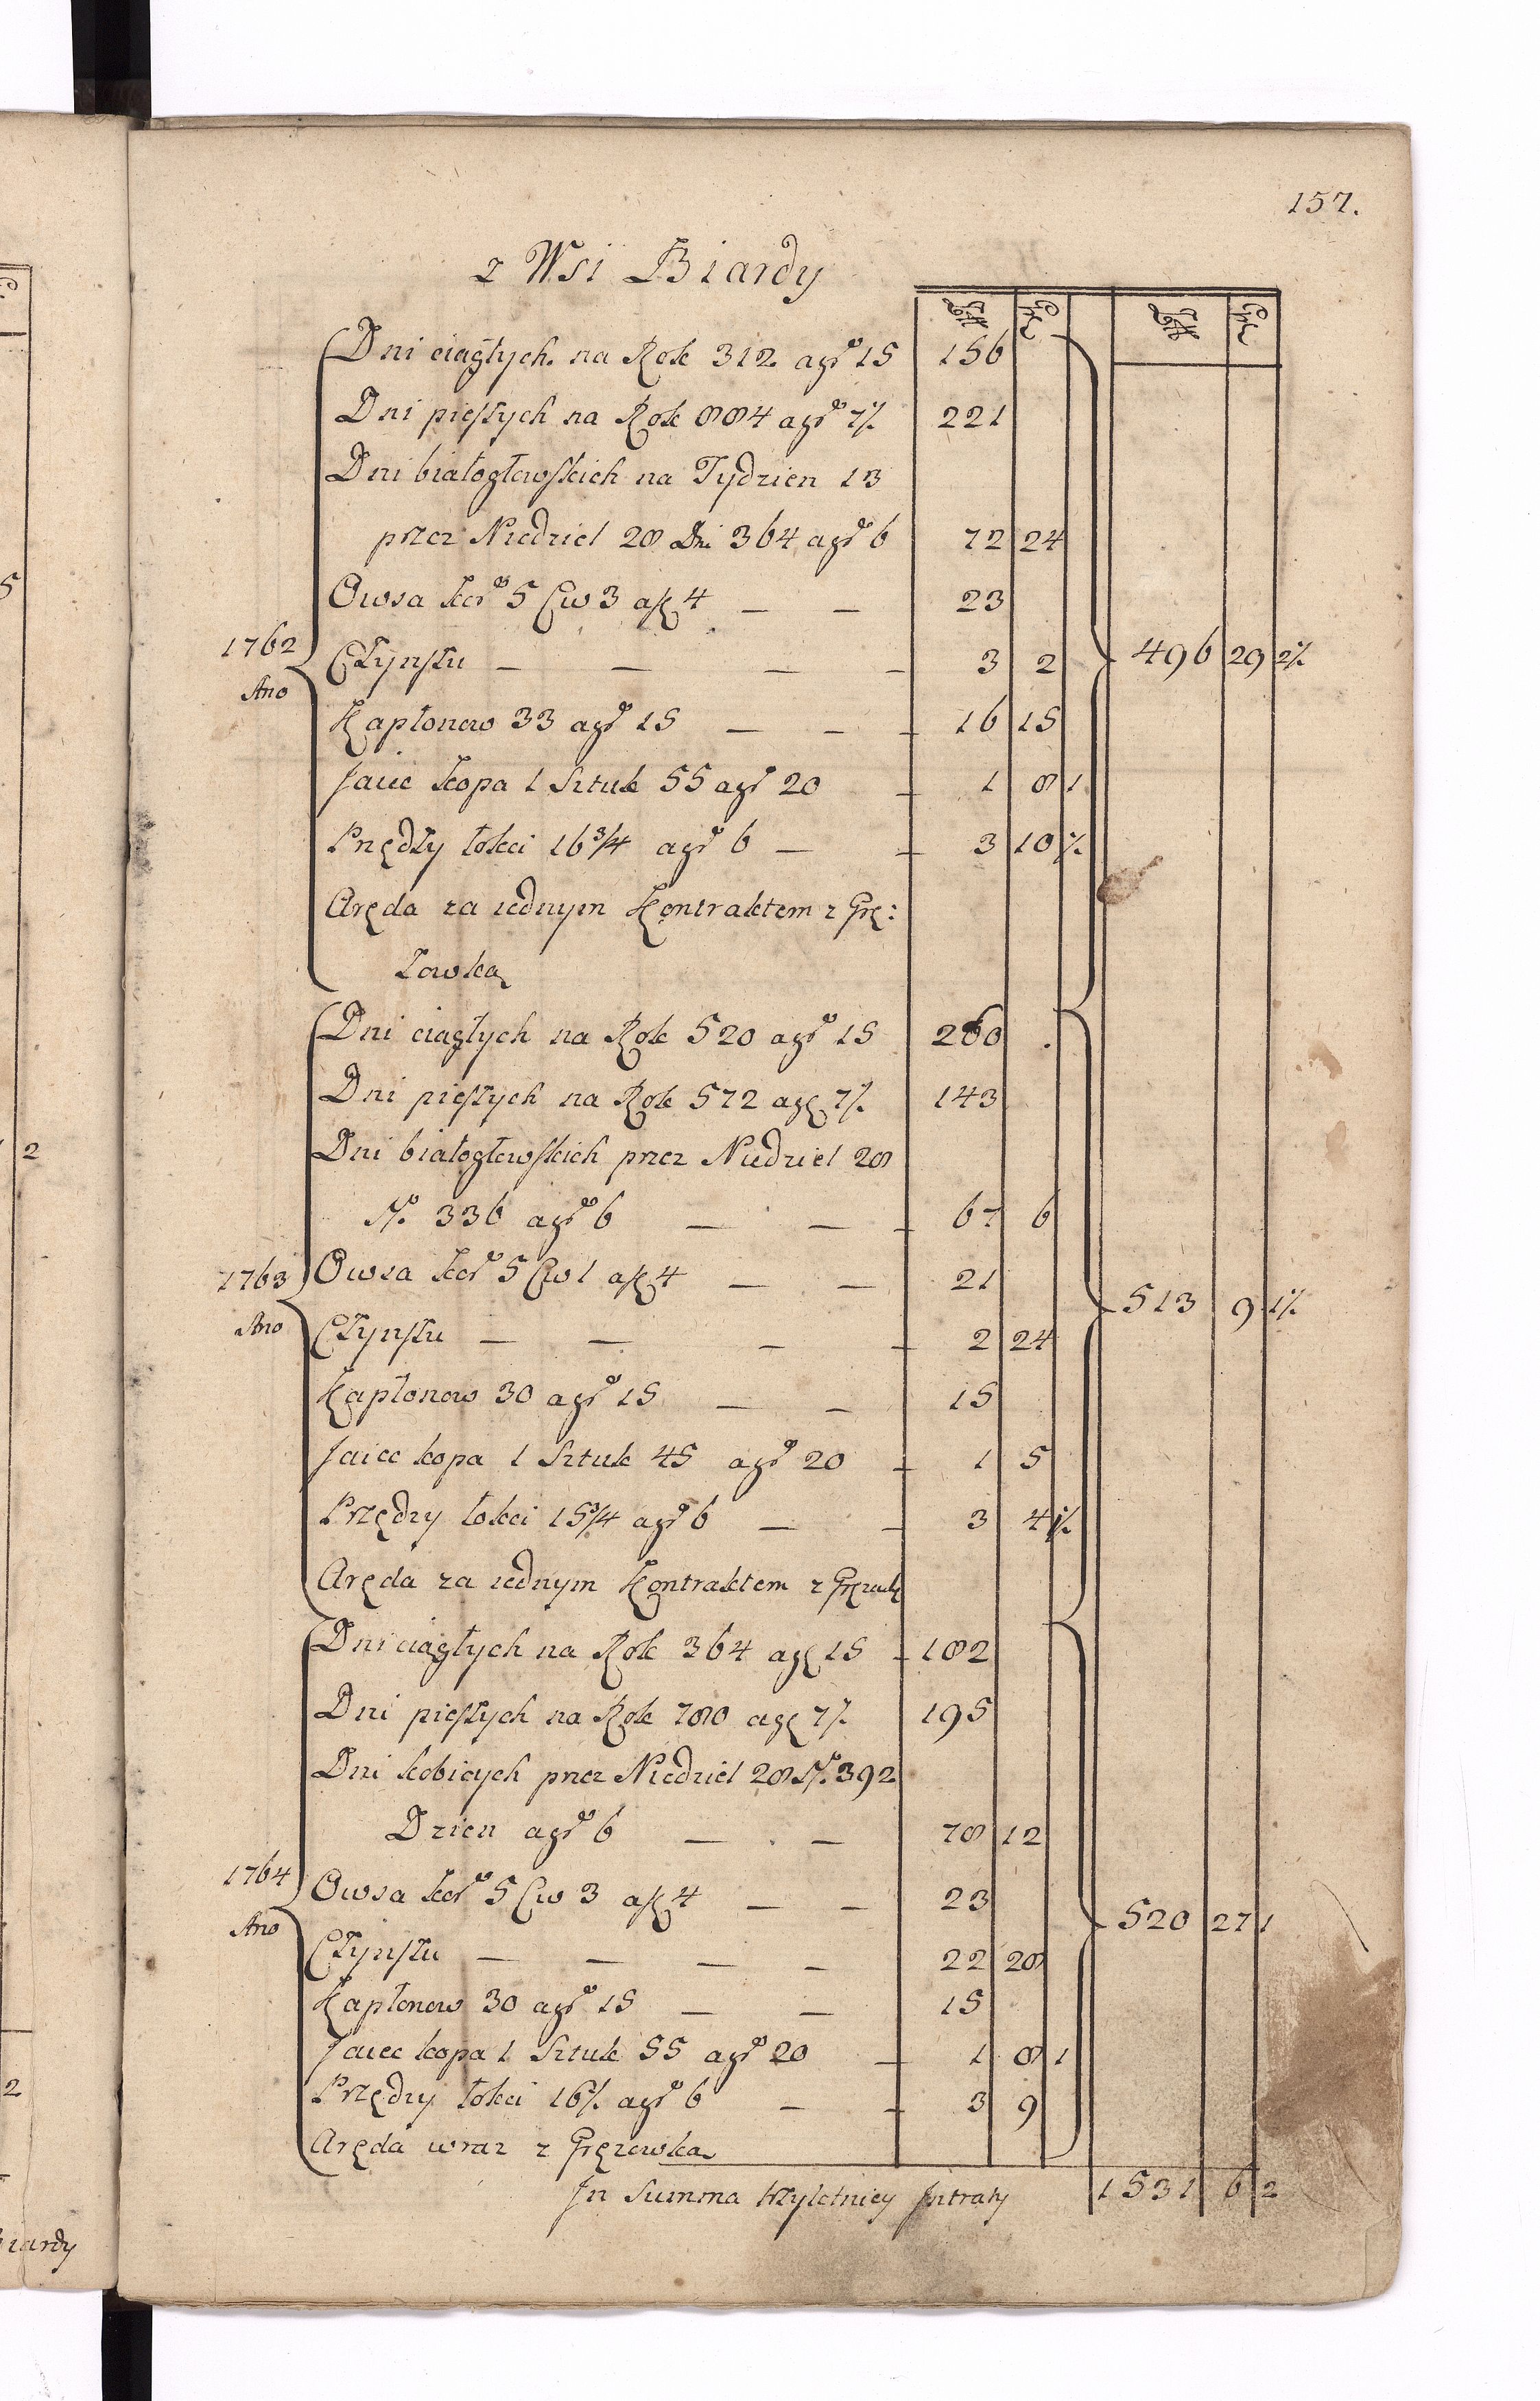 157.
z Wsi Biardy
Dni ciągłych na Rok 312 agr 15 156
Dni pieszych na Rok 884 agr 7½ 221
Dni białogłowskich na Tydzien 13
przez Niedziel 28 Dni 364 agr 6 72 24
1762 Ano
Owsa kor 5 Cw 3 a 4 — — 23
Czynszu — — — — 3 2
496 29 2½
Kapłonow 33 agr 15 — — — 16 15
Jaiec kopa 1 Sztuk 55 agr 20 — 1 8 1
Przędzy łokci 16 3/4 agr 6 — — 3 10 ½
Aręda za iednym Kontraktem z Grę:
zowką
Dni ciągłych na Rok 520 agr 15 260
Dni pieszych na Rok 572 agr 7½ 143
Dni białogłowskich przez Niedziel 28
No 336 agr 6 — — — 67 6
1763 Ano
Owsa kor 5 Cw 1 a 4 — — 21
513 9 1½
Czynszu — — — — 2 24
Kapłonow 30 agr 15 — — 15
Jaiec kopa 1 Sztuk 45 agr 20 — 1 5
Przędzy łokci 15 3/4 agr 6 — — 3 4 1½
Aręda za iednym Kontraktem z
Dni ciągłych na Rok 364 agr 15 — 182
Dni pieszych na Rok 780 agr 7½ 195
Dni kobiecych przez Niedziel 28 No 392
Dzien agr 6 — — 78 12
1764 Ano
Owsa kor 5 Cw 3 a 4 — — 23
520 27 1
Czynszu — — — — 22 28
Kapłonow 30 agr 15 — — 15
Jaiec kopa 1 Sztuk 55 agr 20 — 1 8 1
Przędzy łokci 16½ agr 6 — — 3 9
Aręda wraz z Gręzowką
Jn Summa trzyletniey Jntraty 1531 6 2